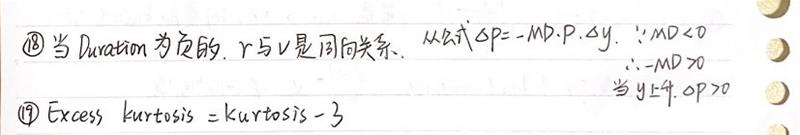 ⑱ 当 Duration 为负的. r与V是同向关系. 从公式 ΔP=-MD·P·Δy. ∵MD<0
∴-MD>0
当y上升. ΔP>0
⑲ Excess kurtosis = kurtosis - 3